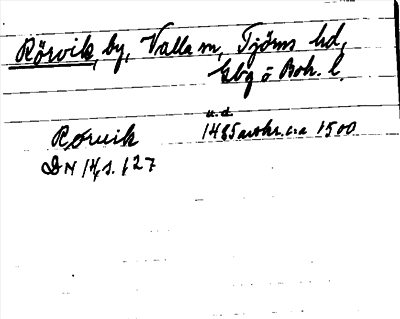 Rörvik, by, Valla sn, Tjörns hd,
Gbg o Boh. l.
u.d.
Røruik 1485 avskr. c:a 1500
DN 14, s. 127